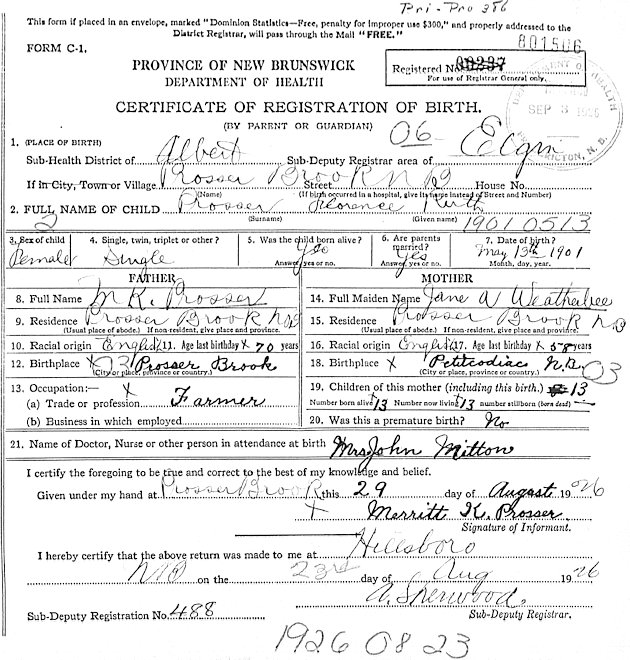 Pri-Pro 386
This form if placed in an envelope, marked "Dominion Statistics—Free, penalty for improper use $300," and properly addressed to the
District Registrar, will pass through the Mail "FREE."
FORM C-1.
801506
PROVINCE OF NEW BRUNSWICK
DEPARTMENT OF HEALTH
Registered No.
For use of Registrar General only.
CERTIFICATE OF REGISTRATION OF BIRTH.
DEPARTMENT OF HEALTH
SEP 3 1926
FREDERICTON, N. B.
(BY PARENT OR GUARDIAN)
06
1. (PLACE OF BIRTH)
Sub-Health District of Albert Sub-Deputy Registrar area of Elgin
If in City, Town or Village Prosser Brook N B Street House No.
(Name) (If birth occurred in a hospital, give its name instead of Street and Number)
2. FULL NAME OF CHILD Prosser Florence Ruth
(Surname) (Given name)
2 1901 05 13
3. Sex of child Female
4. Single, twin, triplet or other? Single
5. Was the child born alive? Yes Answer yes or no.
6. Are parents married? Yes Answer, yes or no.
7. Date of birth? May 13th 1901 Month, day, year.
FATHER
8. Full Name M K. Prosser
9. Residence Prosser Brook NB
(Usual place of abode.) If non-resident, give place and province.
10. Racial origin English 11. Age last birthday x 70 years
12. Birthplace x 03 Prosser Brook
(City or place, province or country.)
13. Occupation:— x
(a) Trade or profession Farmer
(b) Business in which employed
MOTHER
14. Full Maiden Name Jane A Weatherbee
15. Residence Prosser Brook NB
(Usual place of abode.) If non-resident, give place and province.
16. Racial origin English 17. Age last birthday x 58 years
18. Birthplace x Petitcodiac N.B. 03
(City or place, province or country.)
19. Children of this mother (including this birth.) 13
Number born alive 13 Number now living 13 number stillborn (born dead) —
20. Was this a premature birth? No
21. Name of Doctor, Nurse or other person in attendance at birth Mrs John Mitton
I certify the foregoing to be true and correct to the best of my knowledge and belief.
Given under my hand at Prosser Brook this 29 day of August 1926
x Merritt K. Prosser.
Signature of Informant.
I hereby certify that the above return was made to me at Hillsboro
NB on the 23rd day of Aug 1926
A. Sherwood.
Sub-Deputy Registration No. 488 Sub-Deputy Registrar.
1926 08 23